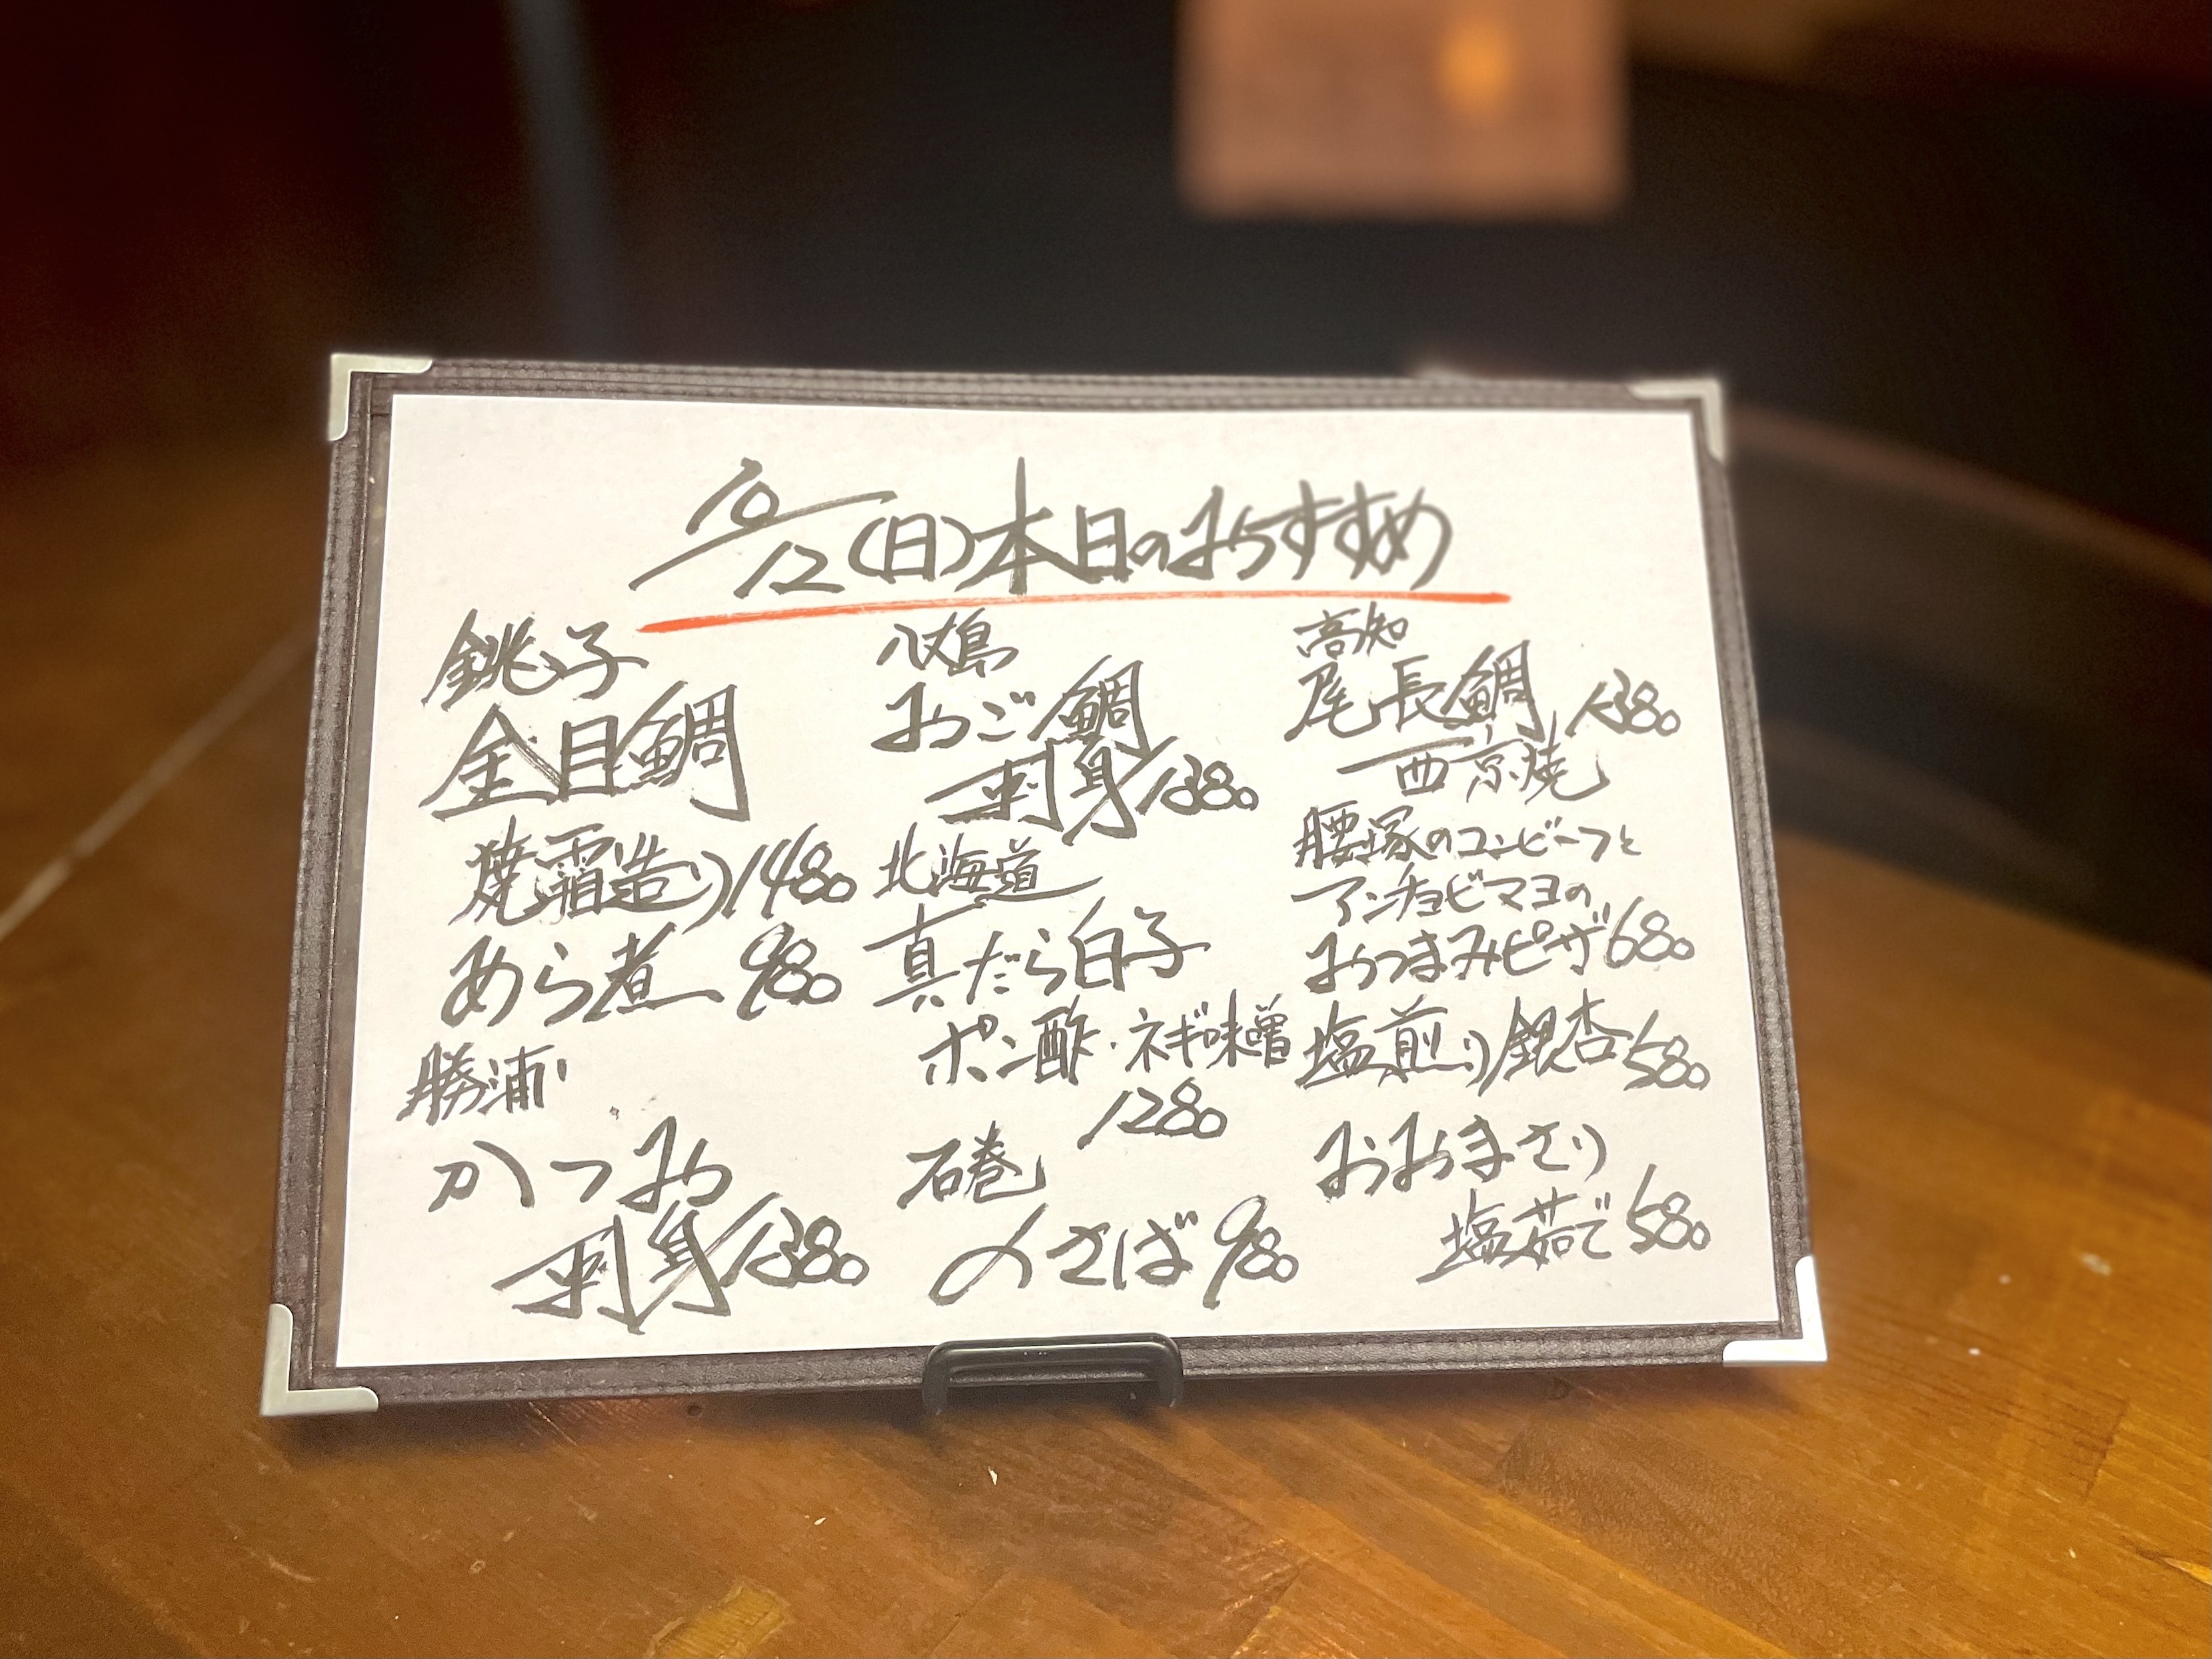 10/12(日)本日のおすすめ
銚子
金目鯛
焼霜造り1480
あら煮 980
勝浦
かつお
刺身1380
八丈島
おご鯛
刺身1380
北海道
真だら白子
ポン酢・ネギ味噌
1280
石巻
〆さば980
高知
尾長鯛 1380
西京焼
腰塚のコンビーフと
アンチョビマヨの
おつまみピザ680
塩煎り銀杏580
おおまさり
塩茹で580